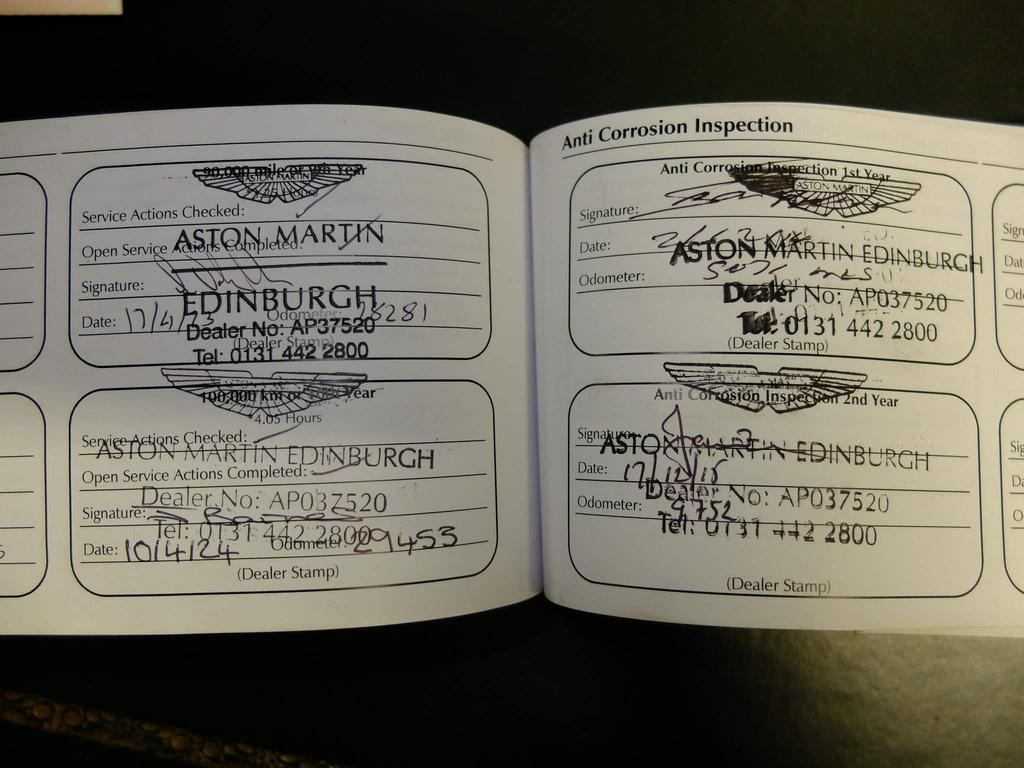 90,000 mile or 9th Year
ASTON MARTIN
Service Actions Checked:
Open Service Actions Completed:
ASTON MARTIN
Signature:
EDINBURGH
Date: 17/4/23 Odometer: 28281
Dealer No: AP37520
(Dealer Stamp)
Tel: 0131 442 2800
100,000 km or 10th Year
4.05 Hours
Service Actions Checked:
ASTON MARTIN EDINBURGH
Open Service Actions Completed:
Dealer No: AP037520
Signature:
Tel: 0131 442 2800
Date: 10/4/24 Odometer: 29453
(Dealer Stamp)
Anti Corrosion Inspection
Anti Corrosion Inspection 1st Year
ASTON MARTIN
Signature:
Date:
ASTON MARTIN EDINBURGH
Odometer:
Dealer No: AP037520
Tel: 0131 442 2800
(Dealer Stamp)
Anti Corrosion Inspection 2nd Year
Signature:
ASTON MARTIN EDINBURGH
Date: 17/12/15
Dealer No: AP037520
Odometer: 9,752
Tel: 0131 442 2800
(Dealer Stamp)